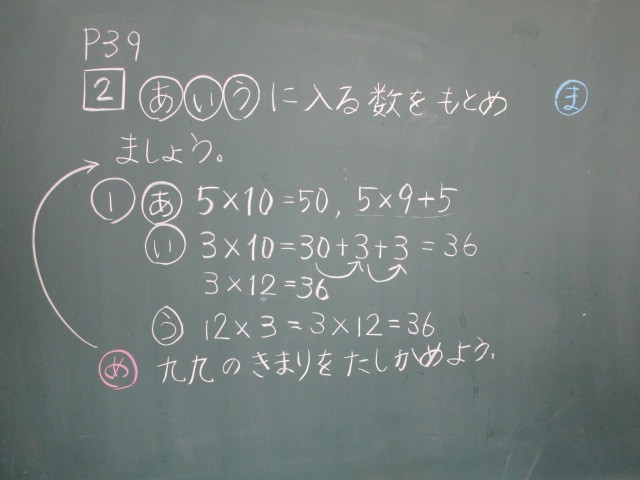 P39
2 あ い う に入る数をもとめ
ま
ましょう。
① あ 5×10=50, 5×9+5
い 3×10=30+3+3=36
3×12=36
う 12×3=3×12=36
め 九九のきまりをたしかめよう.